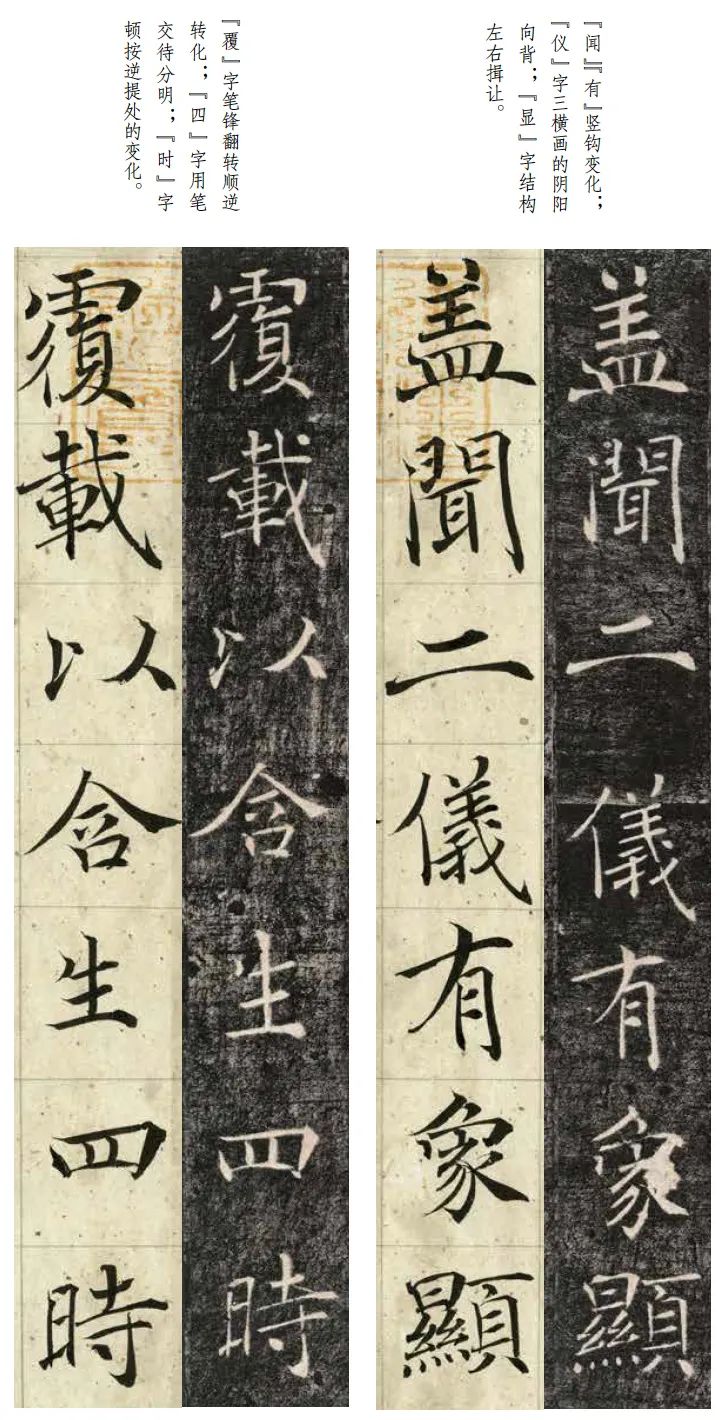 『闻』『有』竖钩变化；
『仪』字三横画的阴阳
向背；『显』字结构
左右揖让。
『覆』字笔锋翻转顺逆
转化；『四』字用笔
交待分明；『时』字
顿按逆提处的变化。
盖聞二儀有象顯
盖聞二儀有象顯
覆載以含生四時
覆載以含生四時